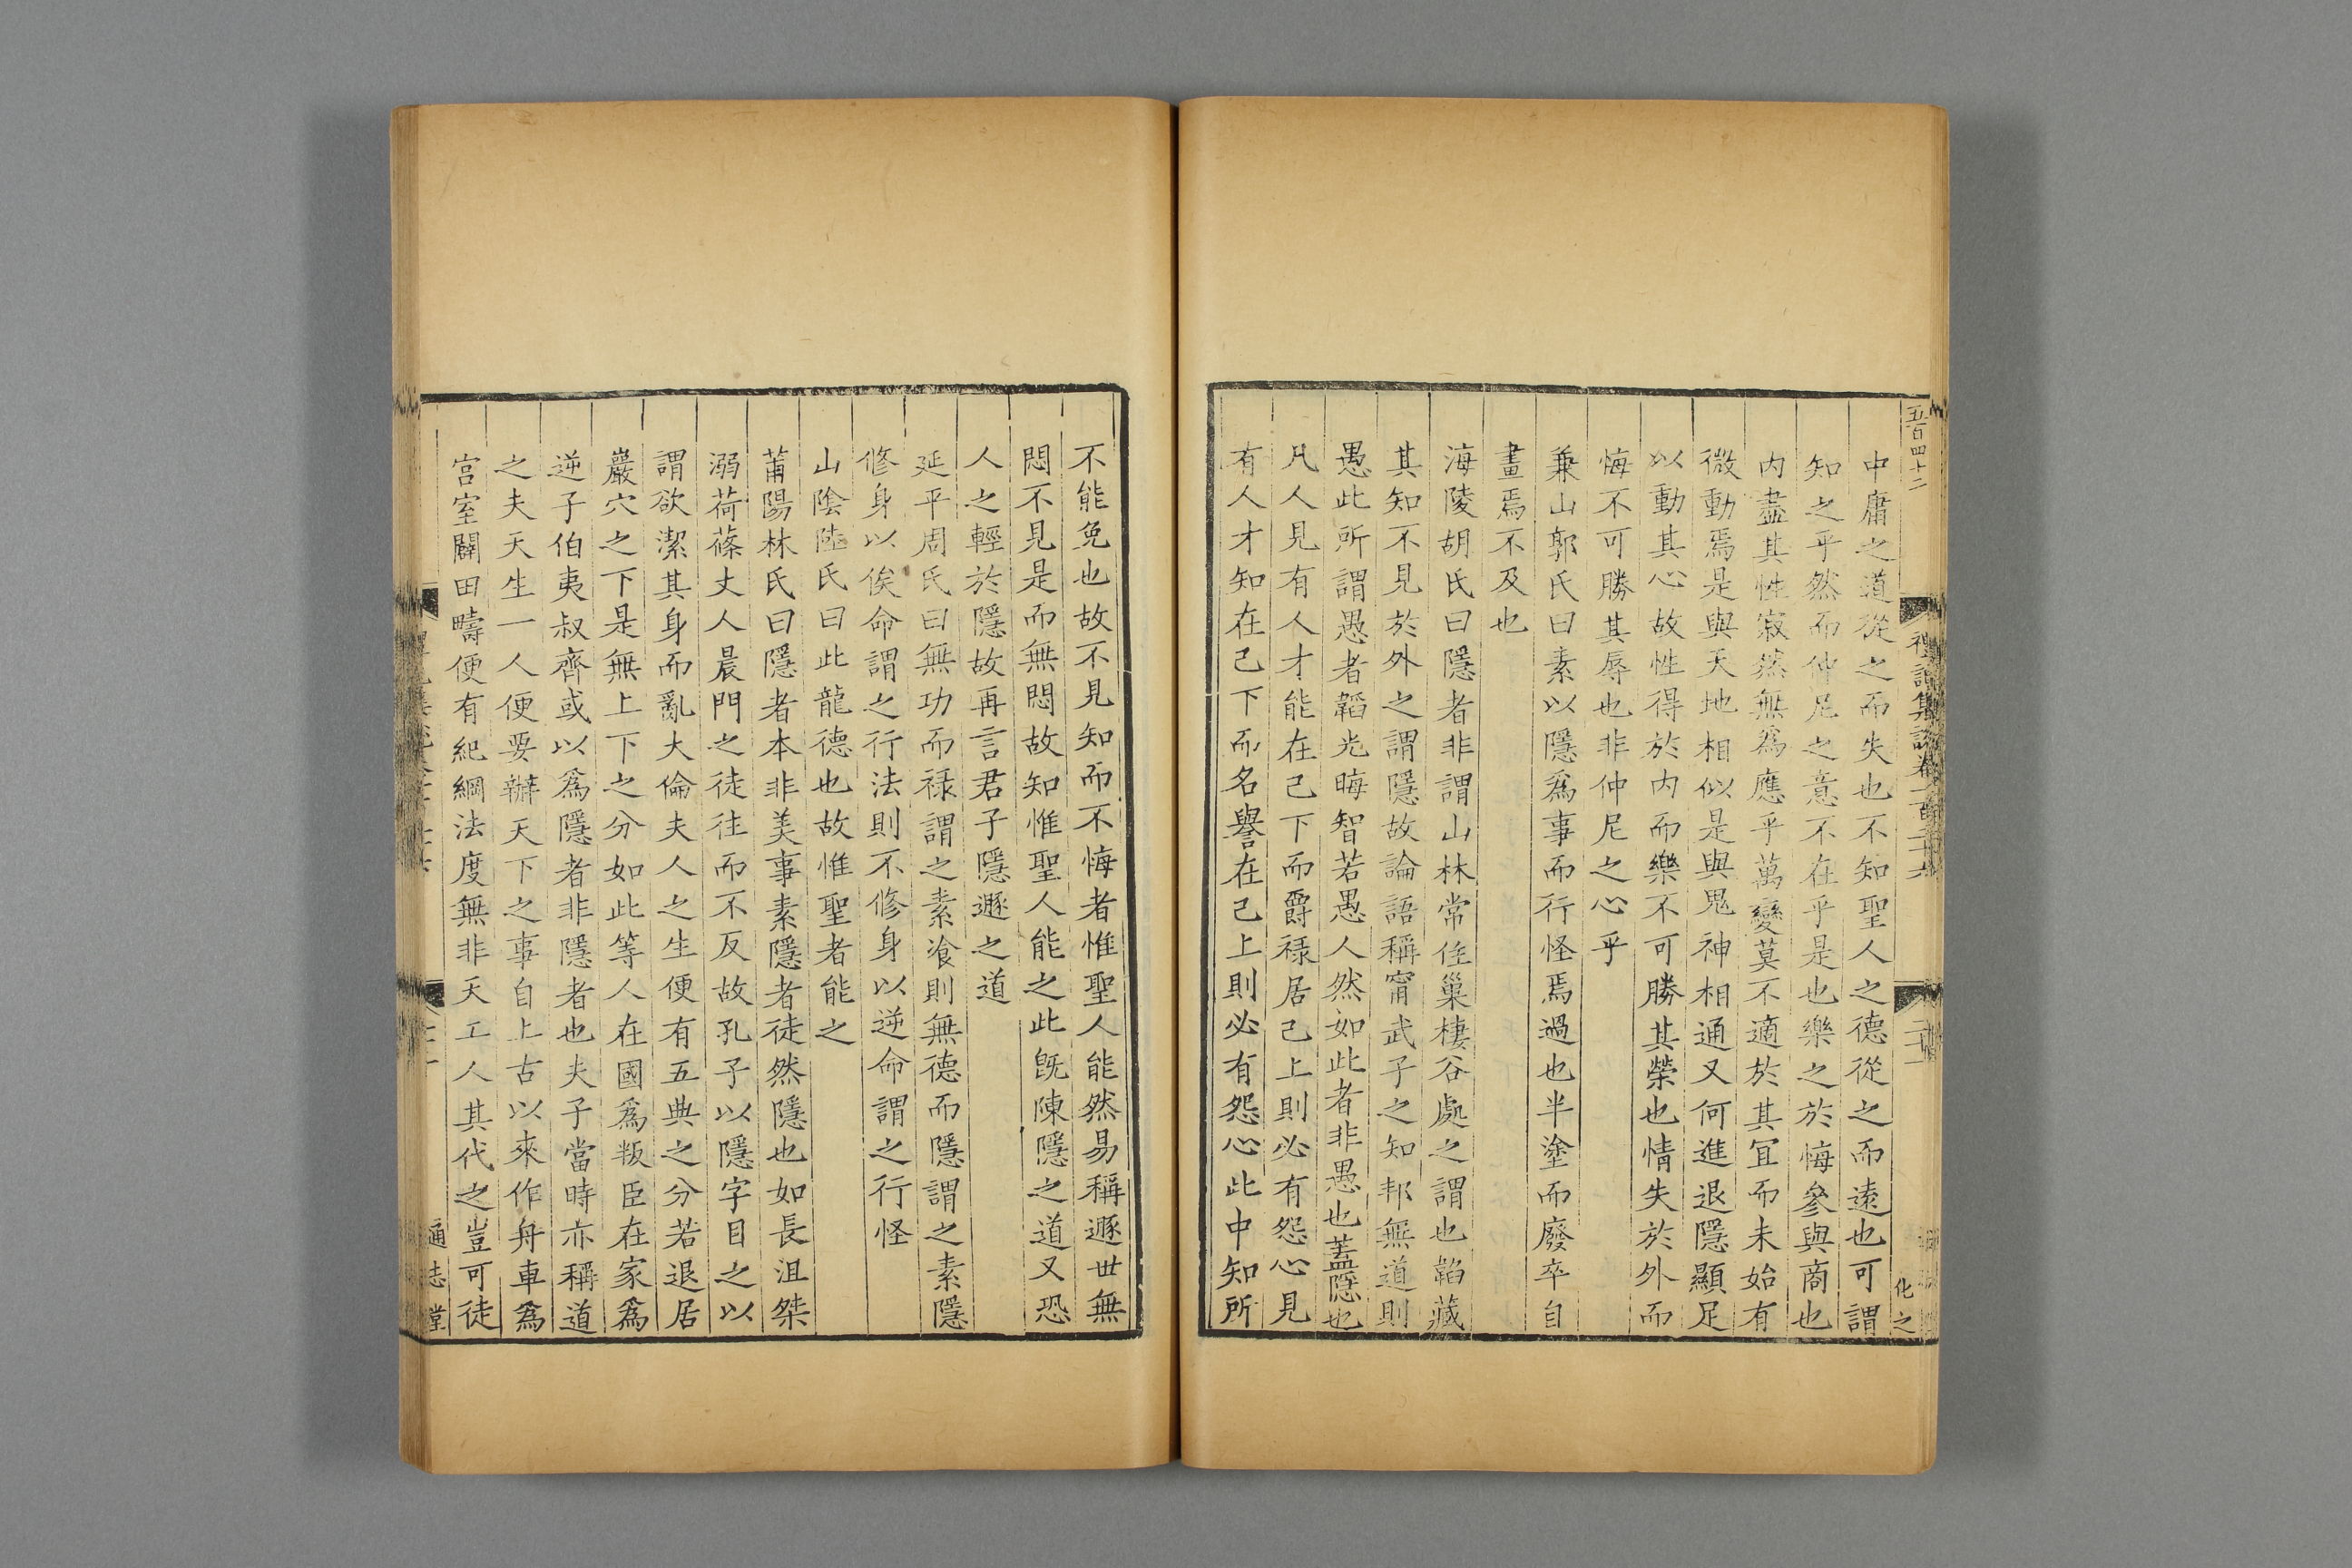 五百四十二
中庸之道從之而失也不知聖人之德從之而遠也可謂
知之乎然而仲尼之意不在乎是也樂之於悔參與商也
内盡其性寂然無爲應乎萬變莫不適於其宜而未始有
微動焉是與天地相似是與鬼神相通又何進退隱顯足
以動其心故性得於内而樂不可勝其榮也情失於外而
悔不可勝其辱也非仲尼之心乎
兼山郭氏曰素以隱爲事而行怪焉過也半塗而廢卒自
畫焉不及也
海陵胡氏曰隱者非謂山林常住巢棲谷處之謂也韜藏
其知不見於外之謂隱故論語稱甯武子之知邦無道則
愚此所謂愚者韜光晦智若愚人然如此者非愚也蓋隱也
凡人見有人才能在己下而爵禄居己上則必有怨心見
有人才知在己下而名譽在己上則必有怨心此中知所
禮記集說卷一百二十六
化之
不能免也故不見知而不悔者惟聖人能然易稱遯世無
悶不見是而無悶故知惟聖人能之此旣陳隱之道又恐
人之輕於隱故再言君子隱遯之道
延平周氏曰無功而禄謂之素飡則無德而隱謂之素隱
修身以俟命謂之行法則不修身以逆命謂之行怪
山陰陸氏曰此龍德也故惟聖者能之
莆陽林氏曰隱者本非美事素隱者徒然隱也如長沮桀
溺荷蓧丈人晨門之徒往而不反故孔子以隱字目之以
謂欲潔其身而亂大倫夫人之生便有五典之分若退居
巖穴之下是無上下之分如此等人在國爲叛臣在家爲
逆子伯夷叔齊或以爲隱者非隱者也夫子當時亦稱道
之夫天生一人便要辦天下之事自上古以來作舟車爲
宫室闢田疇便有紀綱法度無非天工人其代之豈可徒
通志堂